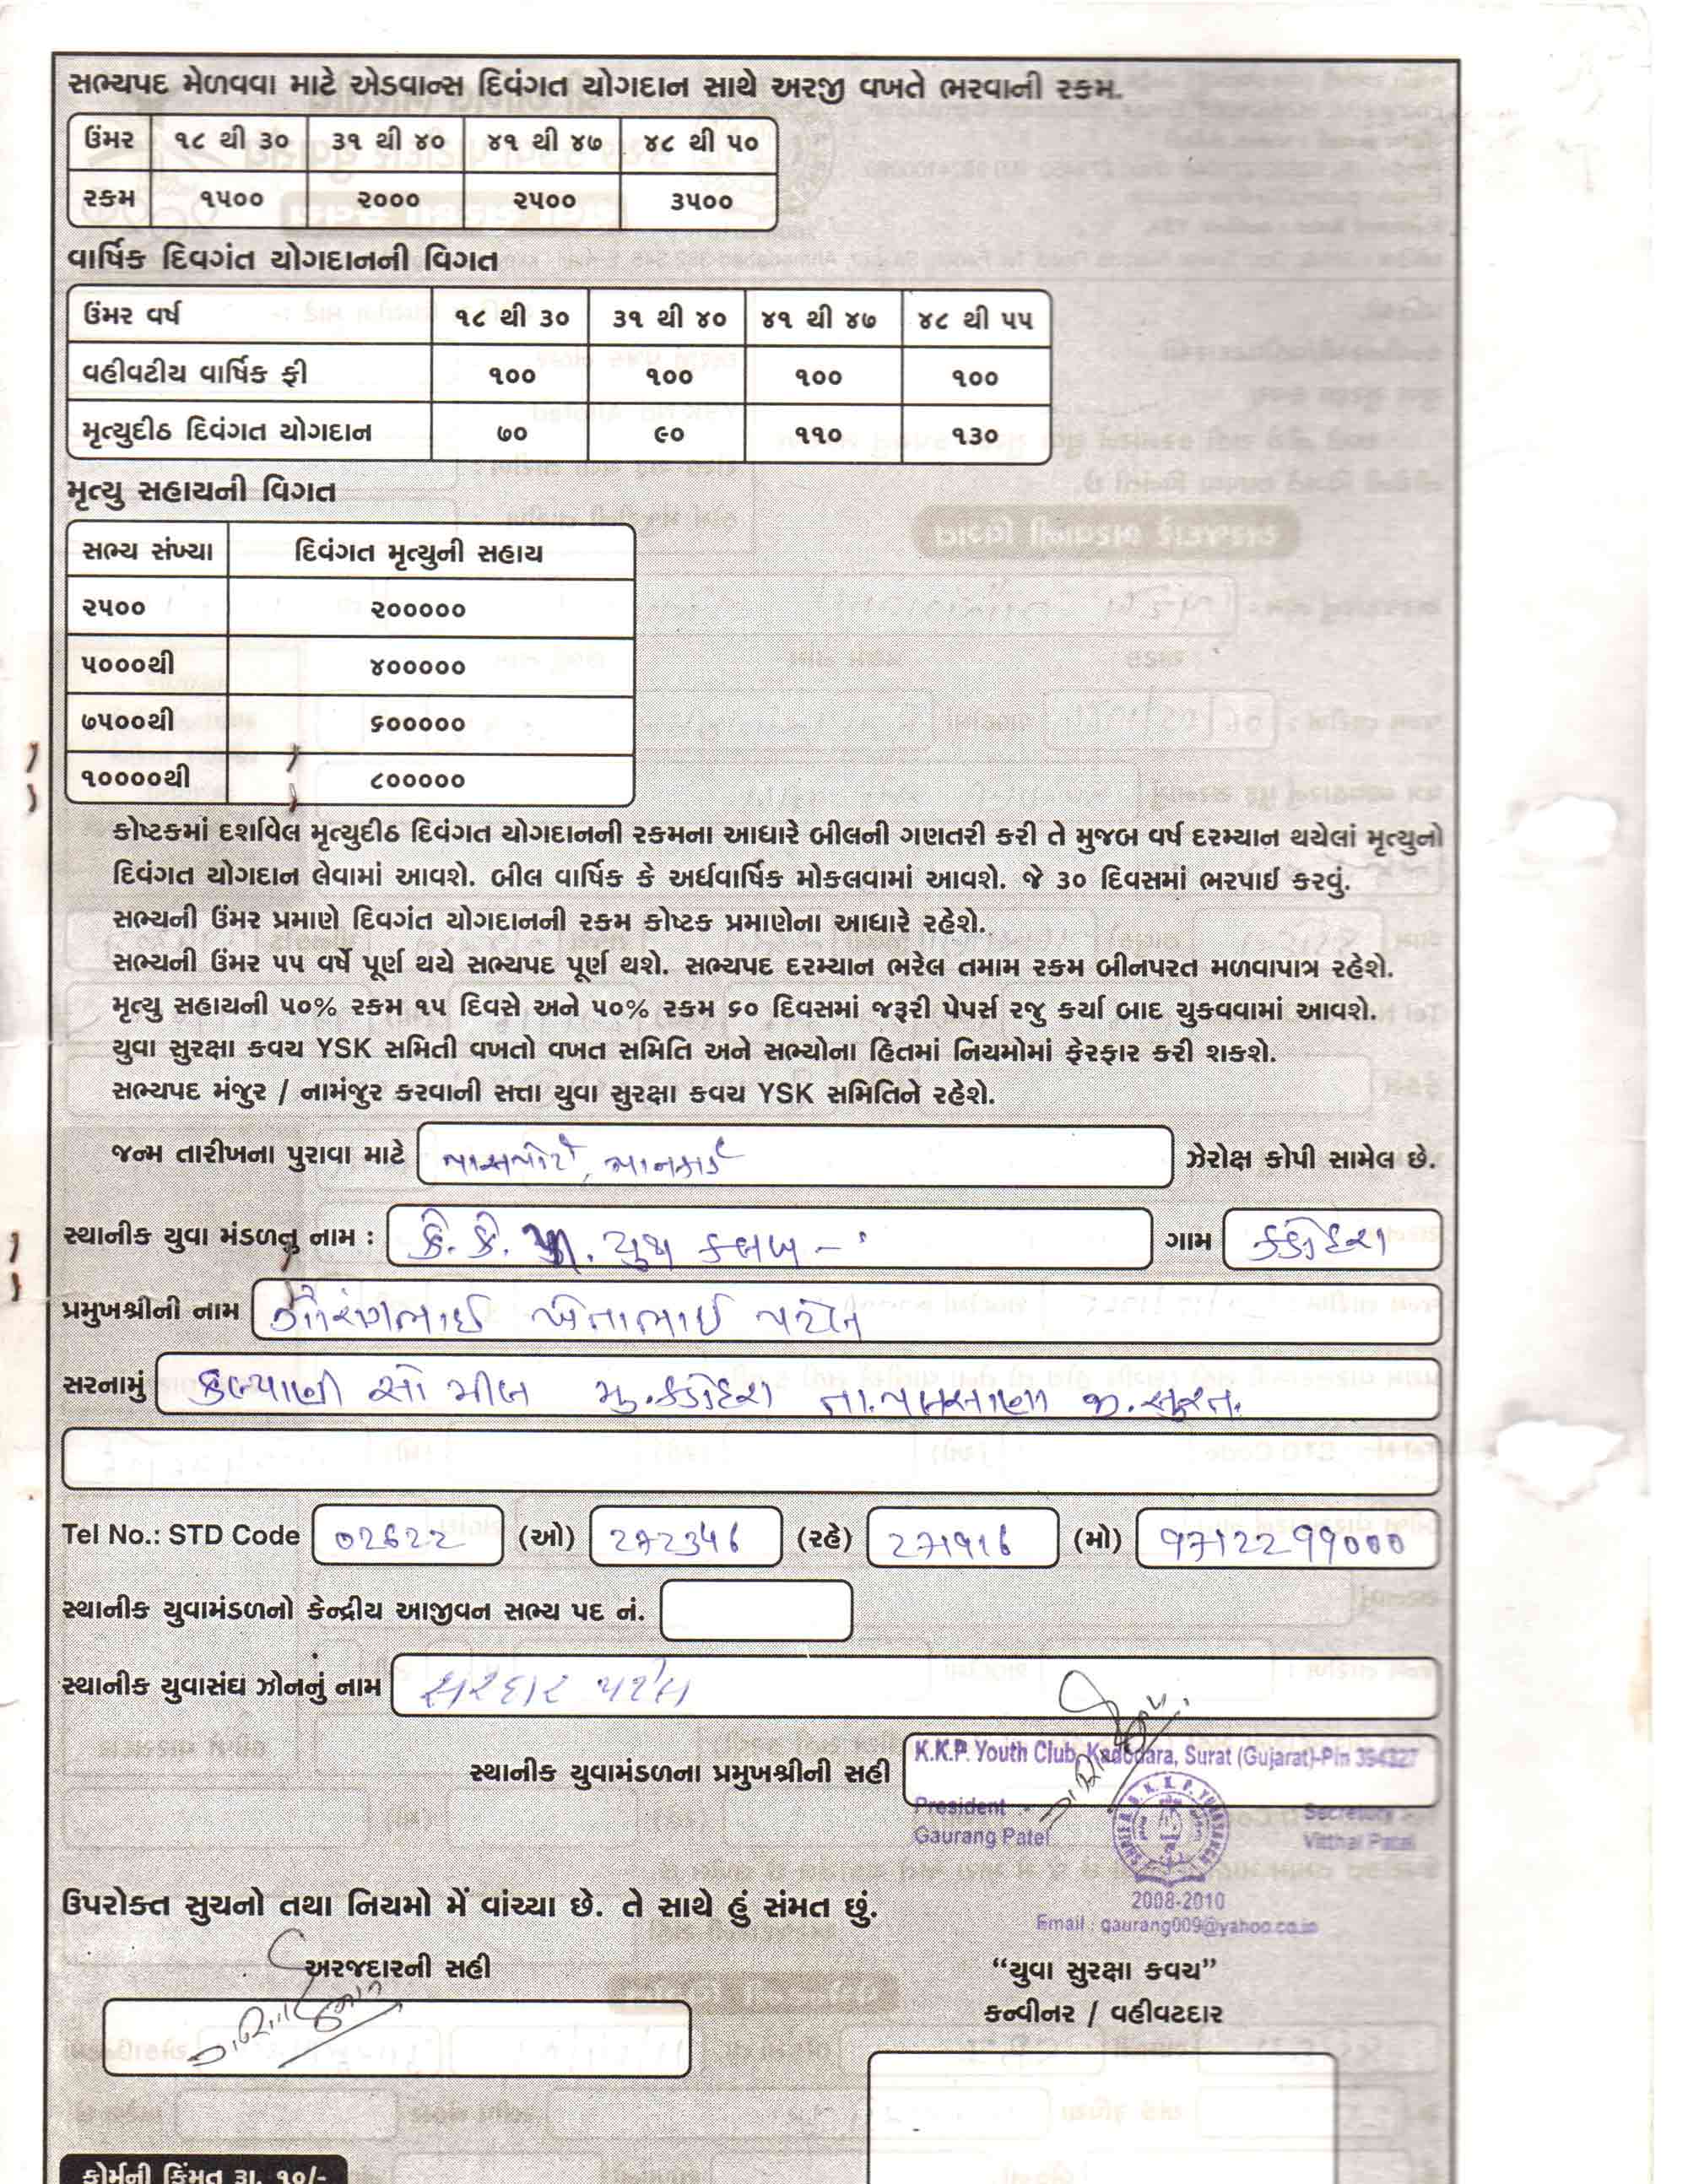 સભ્યપદ મેળવવા માટે એડવાન્સ દિવંગત યોગદાન સાથે અરજી વખતે ભરવાની રકમ.
ઉંમર ૧૮ થી ૩૦ ૩૧ થી ૪૦ ૪૧ થી ૪૭ ૪૮ થી ૫૦
રકમ ૧૫૦૦ ૨૦૦૦ ૨૫૦૦ ૩૫૦૦
વાર્ષિક દિવગંત યોગદાનની વિગત
ઉંમર વર્ષ ૧૮ થી ૩૦ ૩૧ થી ૪૦ ૪૧ થી ૪૭ ૪૮ થી ૫૫
વહીવટીય વાર્ષિક ફી ૧૦૦ ૧૦૦ ૧૦૦ ૧૦૦
મૃત્યુદીઠ દિવંગત યોગદાન ૭૦ ૯૦ ૧૧૦ ૧૩૦
મૃત્યુ સહાયની વિગત
સભ્ય સંખ્યા દિવંગત મૃત્યુની સહાય
૨૫૦૦ ૨૦૦૦૦૦
૫૦૦૦થી ૪૦૦૦૦૦
૭૫૦૦થી ૬૦૦૦૦૦
૧૦૦૦૦થી ૮૦૦૦૦૦
કોષ્ટકમાં દર્શાવેલ મૃત્યુદીઠ દિવંગત યોગદાનની રકમના આધારે બીલની ગણતરી કરી તે મુજબ વર્ષ દરમ્યાન થયેલાં મૃત્યુનો
દિવંગત યોગદાન લેવામાં આવશે. બીલ વાર્ષિક કે અર્ધવાર્ષિક મોકલવામાં આવશે. જે ૩૦ દિવસમાં ભરપાઈ કરવું.
સભ્યની ઉંમર પ્રમાણે દિવગંત યોગદાનની રકમ કોષ્ટક પ્રમાણેના આધારે રહેશે.
સભ્યની ઉંમર ૫૫ વર્ષે પૂર્ણ થયે સભ્યપદ પૂર્ણ થશે. સભ્યપદ દરમ્યાન ભરેલ તમામ રકમ બીનપરત મળવાપાત્ર રહેશે.
મૃત્યુ સહાયની ૫૦% રકમ ૧૫ દિવસે અને ૫૦% રકમ ૬૦ દિવસમાં જરૂરી પેપર્સ રજુ કર્યા બાદ ચુકવવામાં આવશે.
યુવા સુરક્ષા કવચ YSK સમિતી વખતો વખત સમિતિ અને સભ્યોના હિતમાં નિયમોમાં ફેરફાર કરી શકશે.
સભ્યપદ મંજુર / નામંજુર કરવાની સત્તા યુવા સુરક્ષા કવચ YSK સમિતિને રહેશે.
જન્મ તારીખના પુરાવા માટે પાસપોર્ટ, પાનકાર્ડ ઝેરોક્ષ કોપી સામેલ છે.
સ્થાનીક યુવા મંડળનુ નામ : કે. કે. પા. યુથ કલબ – ગામ કડોદરા
પ્રમુખશ્રીની નામ ગૌરાંગભાઈ ખેતાભાઈ પટેલ
સરનામું કલ્યાણી સો મીલ મુ.કડોદરા તા.પલસાણા જી.સુરત.
Tel No.: STD Code 02622 (ઓ) 272346 (રહે) 271916 (મો) 9712299000
સ્થાનીક યુવામંડળનો કેન્દ્રીય આજીવન સભ્ય પદ નં.
સ્થાનીક યુવાસંઘ ઝોનનું નામ સરદાર પટેલ
સ્થાનીક યુવામંડળના પ્રમુખશ્રીની સહી K.K.P. Youth Club, Kadodara, Surat (Gujarat)-Pin 394327
President :- Secretary -
Gaurang Patel Vitthal Patel
2008-2010
Email : gaurang009@yahoo.co.in
ઉપરોક્ત સુચનો તથા નિયમો મેં વાંચ્યા છે. તે સાથે હું સંમત છું.
અરજદારની સહી
“યુવા સુરક્ષા કવચ”
કન્વીનર / વહીવટદાર
ફોર્મની કિંમત રૂા. ૧૦/-